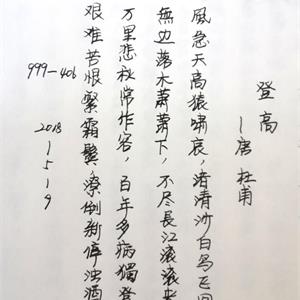 登高
—唐 杜甫
風急天高猿嘯哀，渚清沙白鸟飞回
無边落木萧萧下，不尽長江滚滚来
万里悲秋常作客，百年多病獨登
艰难苦恨繁霜鬓，潦倒新停浊酒
999-406
2018-5-9